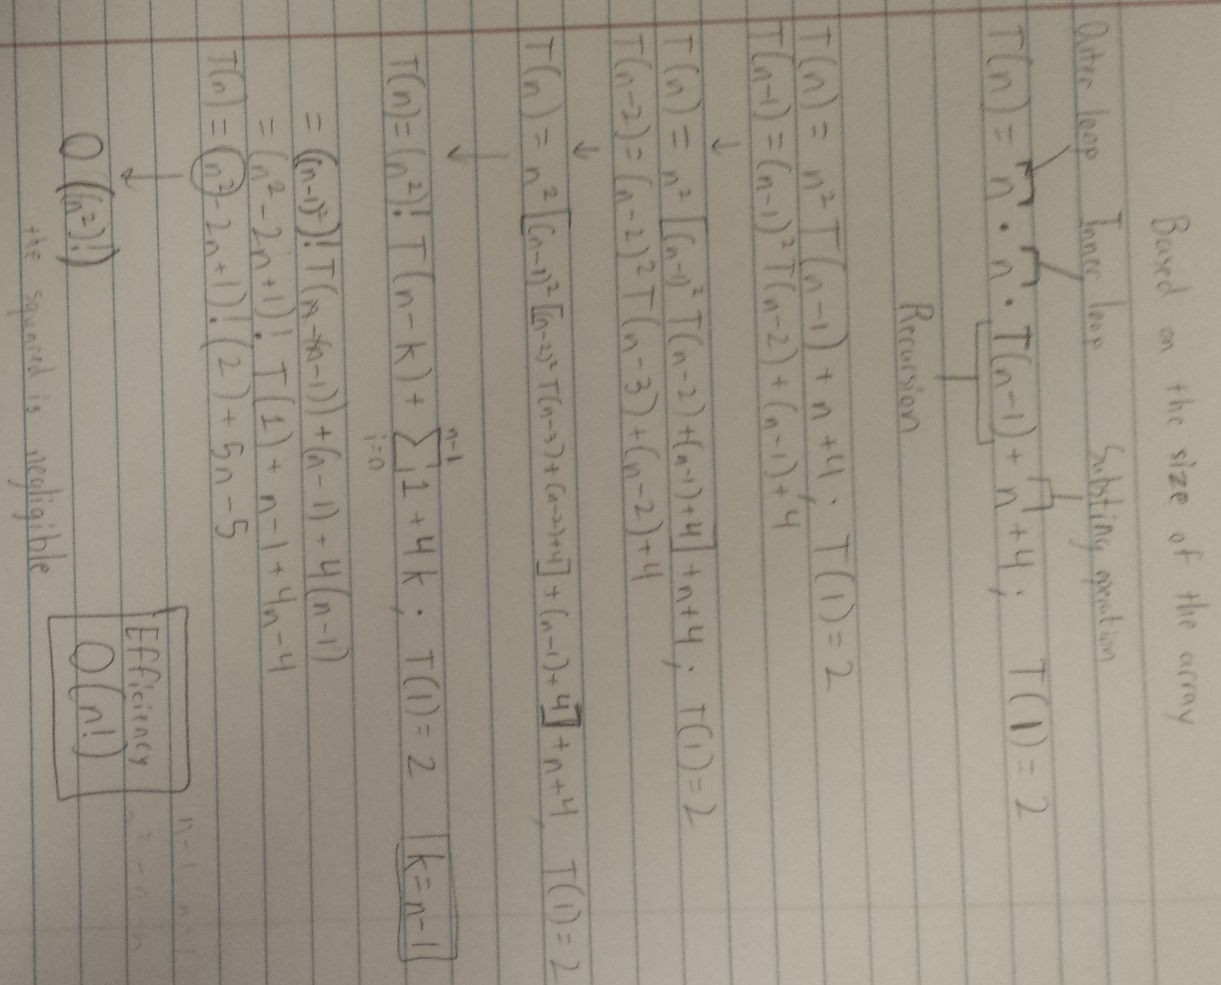 Based on the size of the array
Outer loop Inner loop Substring operation
T(n) = n · n · T(n-1) + n + 4; T(1) = 2
Recursion
T(n) = n² T(n-1) + n + 4; T(1) = 2
T(n-1) = (n-1)² T(n-2) + (n-1) + 4
↓
T(n) = n² [(n-1)² T(n-2) + (n-1) + 4] + n + 4; T(1) = 2
T(n-2) = (n-2)² T(n-3) + (n-2) + 4
↓
T(n) = n² [(n-1)² [(n-2)² T(n-3) + (n-2) + 4] + (n-1) + 4] + n + 4, T(1) = 2
↓
T(n) = (n²)! T(n-k) + n-1 Σ i=0 1 + 4k; T(1) = 2 k = n-1
= ((n-1)²)! T(n-(n-1)) + (n-1) + 4(n-1)
= (n² - 2n + 1)! T(1) + n - 1 + 4n - 4
T(n) = (n² - 2n + 1)! (2) + 5n - 5
↓
O((n²)!)
Efficiency
O(n!)
the squared is negligible